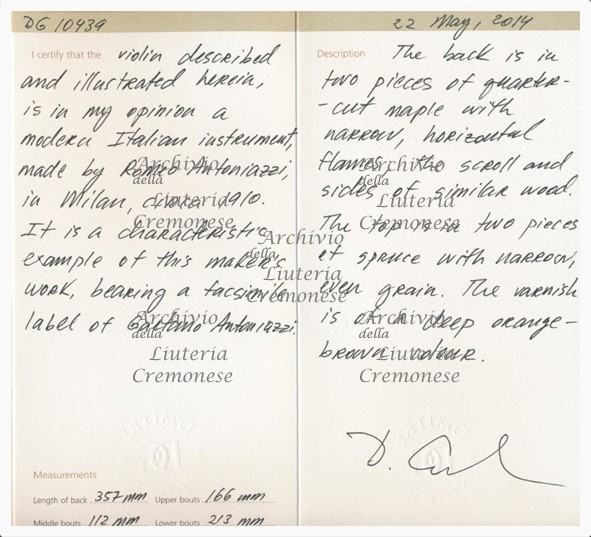 DG 10439
I certify that the violin described
and illustrated herein,
is in my opinion a
modern Italian instrument,
made by Romeo Antoniazzi,
in Milan, circa 1910.
It is a characteristic
example of this maker's
work, bearing a facsimile
label of Gaetano Antoniazzi.
Measurements
Length of back 357 mm Upper bouts 166 mm
Middle bouts 112 mm Lower bouts 213 mm
22 May, 2014
Description The back is in
two pieces of quarter-
-cut maple with
narrow, horizontal
flames, the scroll and
sides of similar wood.
The top is in two pieces
of spruce with narrow,
even grain. The varnish
is of a deep orange-
brown colour.
D.
Archivio
della
Liuteria
Cremonese
Archivio
della
Liuteria
Cremonese
Archivio
della
Liuteria
Cremonese
Archivio
della
Liuteria
Cremonese
Archivio
della
Liuteria
Cremonese